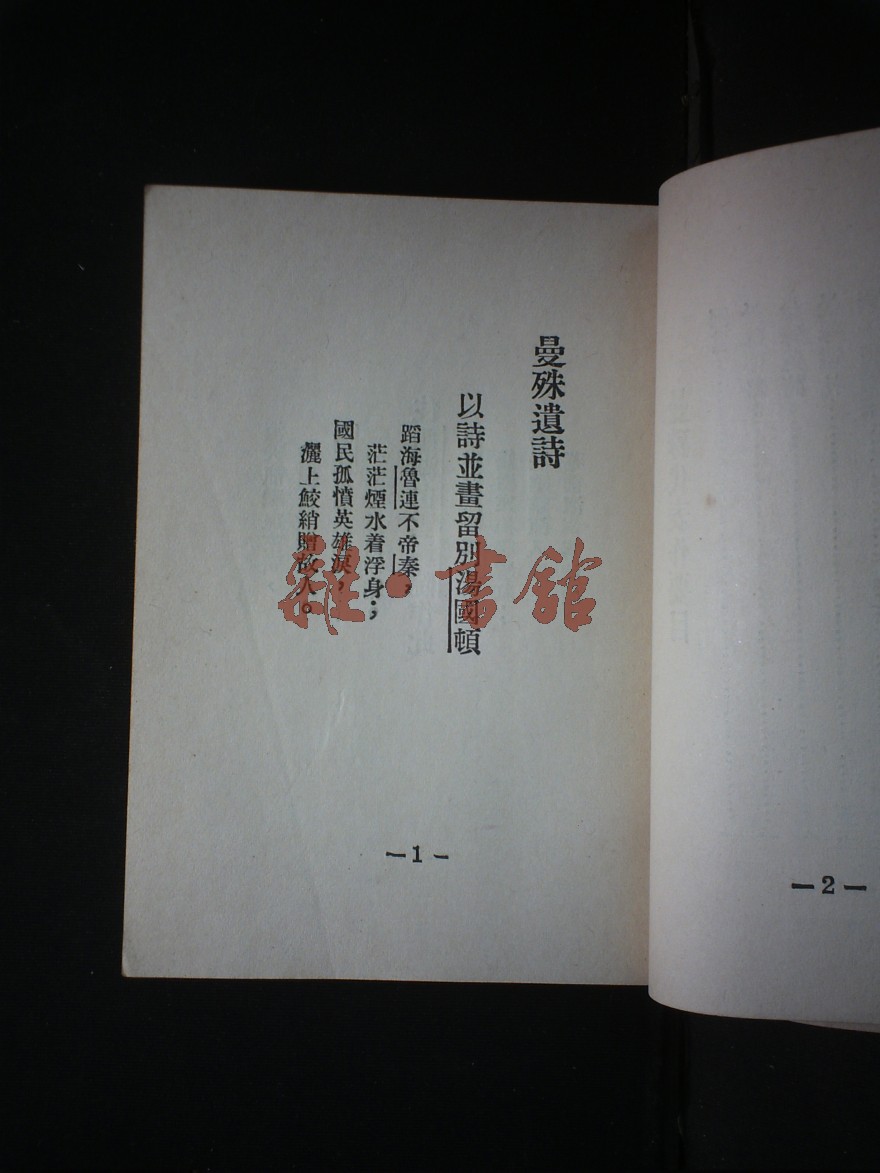 曼殊遺詩
以詩並畫留別湯國頓
蹈海魯連不帝秦，
茫茫煙水着浮身；
國民孤憤英雄淚，
灑上鮫綃贈故人。
—1—
—2—
雜·書館